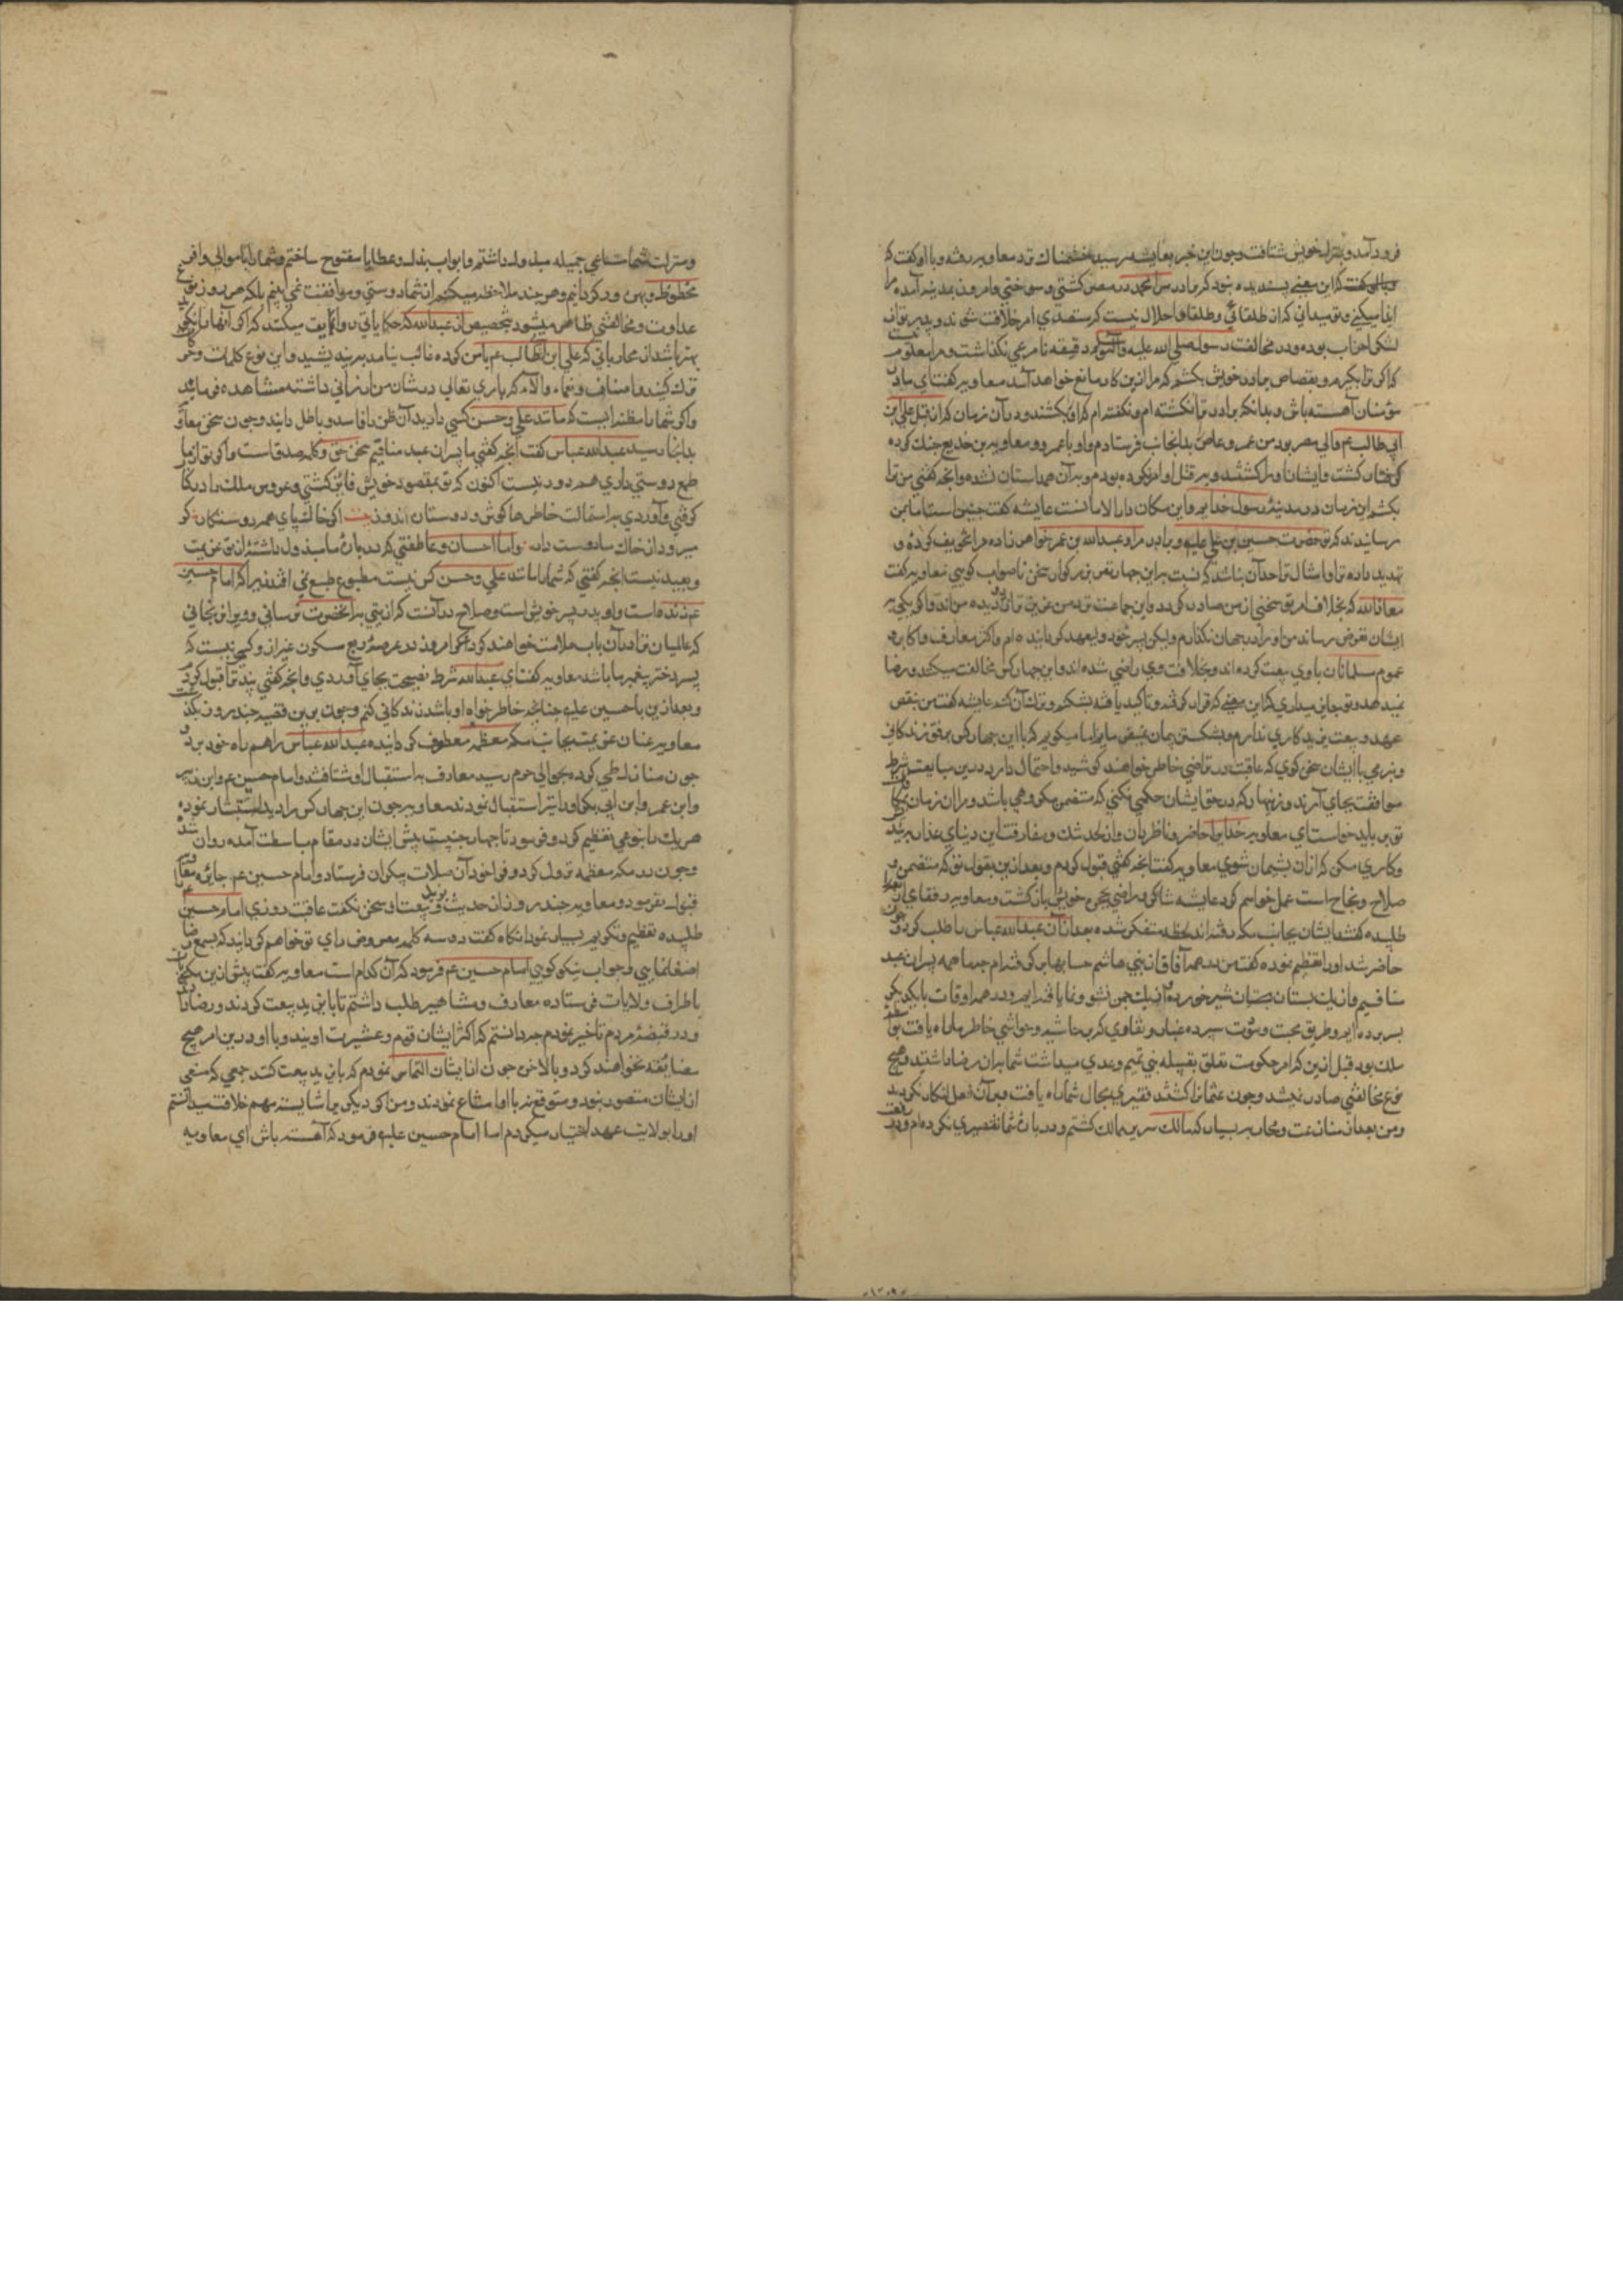 فرود آمد و بمنزل خویش شتافت و چون این خبر بعایشه رسید خشمناك نزد معاویه رفته و با او کفت که
کفت که این معنی پسندیده نبود که برادر من محمد در مصر کشتی و سوختی و امروز بمدینه آمده مرا
ایذا میکنی و تو میدانی که از طلقائی و طلقا را حلال نیست که متصدی امر خلافت شوند و پدر تو از
لشکر احزاب بوده و در مخالفت رسول صلی الله علیه وآله وسلم دقیقه نامرعی نکذاشت و مرا معلوم نیست
که اکر ترا بکیرم و بقصاص برادر خویش بکشم که مرا ازین کار مانع خواهد آمد معاویه کفت ای مادر
مؤمنان آهسته باش و بدانکه برادر ترا نکشته ام و نکفته ام که او را بکشند و در آن زمان که از قبل علی ابن
ابی طالب عم والی مصر بود من عمرو عاص بدانجانب فرستادم و او با عمرو و معاویه بن خدیج جنك کرده
کرفتار کشت و ایشان او را کشتند و بر قتل او امر نکرده بودم و بر آن همداستان نشده و آنچه کفتی من ترا
بکشم این زمان در مدینهٔ رسول خدایم و این مکان دار الامانست عایشه کفت چنین است اما بمن
رسانیدند که تو حضرت حسین بن علی علیه و برادر مرا و عبدالله بن عمر خواهر زاده مرا تخویف کرده و
تهدید داده ترا و امثال ترا حد آن نباشد که نسبت باین چهار نفر بزرکوار سخن ناصواب کویی معاویه کفت
معاذالله که بخلاف امر تو سخنی از من صادر کردد و این جماعت نزد من عزیزتر از دیده من اند و اکر یکی بر
ایشان تعرض رساند من او را در جهان نکذارم ولیکن پسر خود ولیعهد کردانیده ام و اکثر معارف و اکابر و
عموم مسلمانان با وی بیعت کرده اند و بخلافت وی راضی شده اند و این چهار کس مخالفت میکنند و رضا
نمیدهند و تو جایز میداری که این معنی که قرار کرفته و تاکید یافته بشکنم و ترك آن کنم عایشه کفت من بنقض
عهد و بیعت یزید کاری ندارم و بشکستن پیمان نمیفرمایم اما میکویم که با این چهار کس برفق زندکانی
و بنرمی با ایشان سخن کوی که عاقبت در تراضی خاطر خواهند کوشید و احتمال دارد درین مبایعت شرط
موافقت بجای آرند و زنهار که در حق ایشان حکمی نکنی که متضمن مکروهی باشد و از آن زمان
تو می باید خواست ای معاویه خدایرا حاضر و ناظر دان و از لحد تنك و مفارقت این دنیای غدار براندیش
و کاری مکن که از آن پشیمان شوی معاویه کفت آنچه کفتی قبول کردم و بعد ازین بقول تو که متضمن
صلاح و نجاح است عمل خواهم کرد عایشه شاکر و راضی بحجره خویش باز کشت و معاویه رفقای
طلبیده کفتند ایشان بجانب مکه رفته اند لحظه متفکر شده بعد از آن عبدالله عباس را طلب کرد و چون
حاضر شد او را تعظیم نموده کفت من در همه آفاق از بنی هاشم حسابها بر کرفته ام چه ما همه پسران عبد
منافیم و از یك پستان شیر خورده و از یك چمن نشو و نما یافته ایم و در همه اوقات با یکدیکر
بسر برده ایم و طریق محبت و مروت سپرده غبار و نقاری که بر حاشیه و حواشی خاطر ما راه یافت بواسطه
ملك بود قبل ازین که امر حکومت تعلق بقبیله بنی تمیم و عدی میداشت شما بدان رضا داشتید و هیچ
نوع مخالفتی صادر نمیشد و چون عثمانرا کشتند تغییری بحال شما راه یافت و بر آن فعل انکار نکردید
و من بعد از منازعت و محاربه بسیار که مالك سریر ممالك کشتم و در بارهٔ شما تقصیری نکرده ام و در
و منزلت شما مساعی جمیله مبذول داشتم و ابواب بذل و عطایا مفتوح ساختم و شما را با موالی و اتباع
محظوظ و بهره ور کردانیدم و هر چند ملاحظه میکنم از شما دوستی و موافقت نمی بینم بلکه هر روز نوعی
عداوت و مخالفتی ظاهر میشود بتخصیص از عبدالله که حکایاتی روایت میکند که اکر آنها را نکوید
بهتر باشد از محارباتی که علی ابن ابیطالب عم با من کرده غائب نیامد بر نیندیشید و این نوع کلمات و حرکات
ترك کنید و اصناف نعماء و آلاء که باری تعالی در شان من ارزانی داشته مشاهده فرمائید
و اکر شما را مظنه آنست که مانند علی و حسن کسی دارید آن ظن را فاسد و باطل دانید و چون سخن معاویه
بدانجا رسید عبدالله عباس کفت آنچه کفتی ما پسران عبد منافیم سخن حق و کلمه صدق است و اکر تو از ما
طمع دوستی داری هم دور نیست اکنون که تو بمقصود خویش فائز کشتی و عروس ملك را در کنار
کرفتی و آوردی بر استمالت خاطرها کوش و دوستان اندوز بیت اکر خاك پای همه دوستکان کر
میرود از خاك ما دوست دار و اما احسان و عاطفتی که در بارهٔ ما مبذول داشتهٔ از تو غریب
و بعید نیست آنچه کفتی که شما را مانند علی و حسن کس نیست مطبوع طبع نمی افتد زیرا که امام حسین
عم زنده است و او پدر پسر خویش است و صلاح در آنست که اذیتی بر آنحضرت نرسانی و ویرا نرنجانی
که عالمیان ترا در آن باب ملامت خواهند کرد که امروز در عرصهٔ ربع مسکون غیر از و کسی نیست که
پسر دختر پیغمبر ما باشد معاویه کفت ای عبدالله شرط نصیحت بجای آوردی و آنچه کفتی پند ترا قبول کردم
و بعد ازین با حسین علیه چنانچه خاطر خواه او باشد زندکانی کنم و چون برین قضیه چند روز بگذشت
معاویه عنان عزیمت بجانب مکه معظمه معطوف کردانیده عبدالله عباس را همراه خود برد و
چون منازل طی کرده بحوالی حرم رسید معارف به استقبال او شتافتند و امام حسین عم و ابن زبیر
و ابن عمر و ابن ابی بکر او را نیز استقبال نمودند معاویه چون این چهار کس را دید استبشار نموده
هریك را بنوعی تعظیم کرد و فرمود تا چهار جنیبت پیش ایشان در مقام مباسطت آمده روان شد
و چون در مکه معظمه نزول کرد و فراخور آن صلات بیکران فرستاد و امام حسین عم جائزه معاویه
قبول نفرمود و معاویه چند روز از حدیث یزید و بیعت او سخن نکفت عاقبت روزی امام حسین
طلبیده تعظیم و تکریم بسیار نمود آنکاه کفت دو سه کلمه معروض رای تو خواهم کردانید که بسمع رضا
اصغا نمایی و جواب نیکو کویی امام حسین عم فرمود که آن کدام است معاویه کفت پیش ازین
باطراف ولایات فرستاده معارف و مشاهیر طلب داشتم تا با یزید بیعت کردند و رضا دادند
و در قبضهٔ مردم تاخیر نمودم چه دانستم که اکثر ایشان قوم و عشیرت اویند و با او درین امر هیچ
مضایقه نخواهند کرد و بالاخره چون از ایشان التماس نمودم که با یزید بیعت کنند جمعی که منعی
از ایشان متصور نبود و متوقع نه با او امتناع نمودند و من اکر دیکری را شایسته مهم خلافت میدانستم
او را بولایت عهد اختیار میکردم اما امام حسین علیه فرمود که آهسته باش ای معاویه